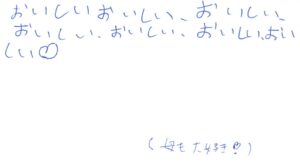 おいしいおいしい、おいしい、
おいしい、おいしい、おいしい、おい
しい♡
(母も大好き♡)